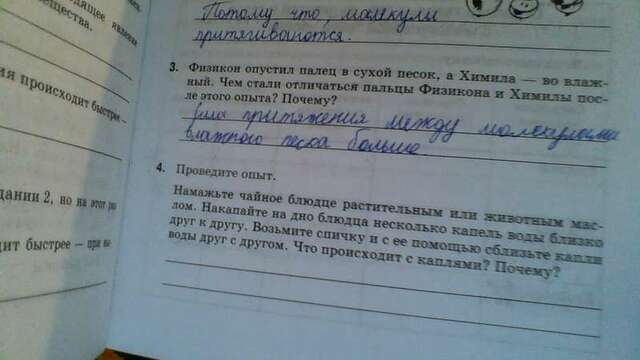 Потому что, молекулы
притягиваются.
3. Физикон опустил палец в сухой песок, а Химила — во влаж-
ный. Чем стали отличаться пальцы Физикона и Химилы пос-
ле этого опыта? Почему?
притяжения между молекулами
влажного песка больше.
4. Проведите опыт.
Намажьте чайное блюдце растительным или животным мас-
лом. Накапайте на дно блюдца несколько капель воды близко
друг к другу. Возьмите спичку и с ее помощью сблизьте капли
воды друг с другом. Что происходит с каплями? Почему?
вещества.
происходит быстрее –
дании 2, но на этот раз
дит быстрее – при